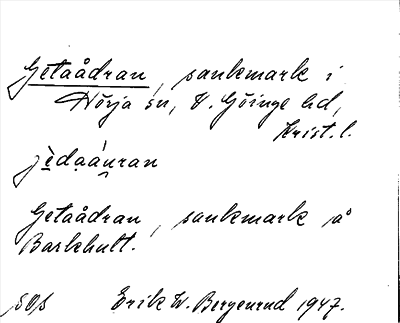 Getaådran, sankmark i
Hörja sn, V. Göinge hd,
Krist. l.
jèdaáu̯ran
Getaådran, sankmark på
Barkhult.
SOS Erik W. Bergenrud 1947.